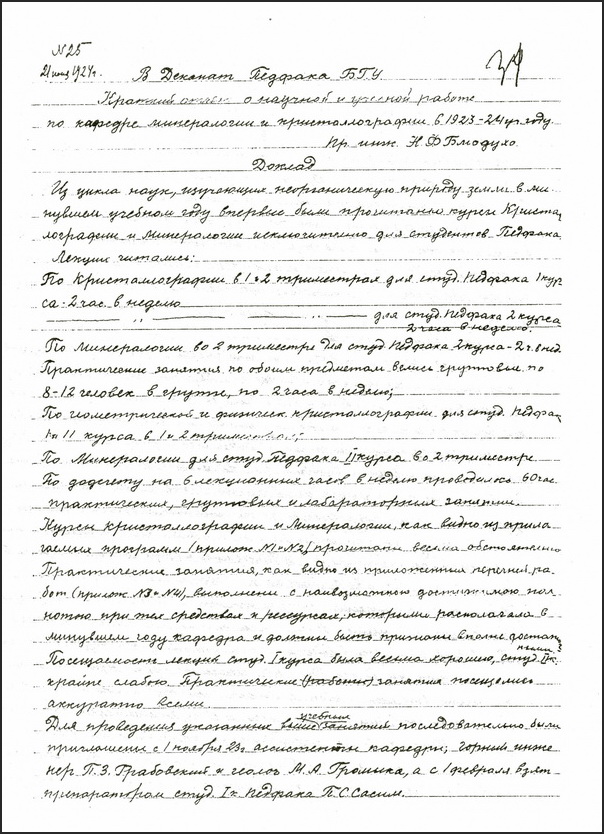 №25
21 июня 1924г.
В Деканат Педфака БГУ.
Краткий отчет о научной и учебной работе
по кафедре минералогии и кристаллографии в 1923-24 уч. году.
Пр. инж. Н.Ф.Блодухо.
Доклад
Из цикла наук, изучающих неорганическую природу земли в ми-
нувшем учебном году впервые были прочитаны курсы Криста-
лографии и Минералогии исключительно для студентов Педфака
Лекции читались:
По Кристаллографии в 1 и 2 триместрах для студ. Педфака 1 кур-
са - 2 час. в неделю
для студ. Педфака 2 курса
2 часа в неделю.
По Минералогии во 2 триместре для студ. Педфака 2 курса - 2 ч. в нед.
Практические занятия по обоим предметам велись группами по
8-12 человек в группе, по 2 часа в неделю;
По геометрической и физическ. кристалографии для студ. Педфа-
II курса в 1 и 2
По Минералогии для студ. Педфака II курса во 2 триместре
По подсчету на 6 лекционных часов в неделю проводилось 60 час.
практических, групповых и лабораторных занятий.
Курсы кристаллографии и Минералогии, как видно из прила-
гаемых программ (прилож. №1 и №2) прочитаны весьма обстоятельно
Практические занятия, как видно из приложенных перечней ра-
бот (прилож. №3 и №4), выполнены с наивозможно достижимою пол-
нотою при тех средствах и рессурсах, которыми располагала в
минувшем году кафедра и должны быть признаны вполне достат
ными
Посещаемость лекций студ. I курса была весьма хорошею, студ. II к.
крайне слабою. Практические (работы) занятия посещались
аккуратно всеми.
учебных
Для проведения указанных выше занятий последовательно были
приглашены с 1 ноября 23г. ассистенты кафедры; горный инже-
нер П.З. Грабовский и геолог М.А. Громыка, а с 1 февраля взят
препаратором студ. I к. Педфака П.С. Сасим.